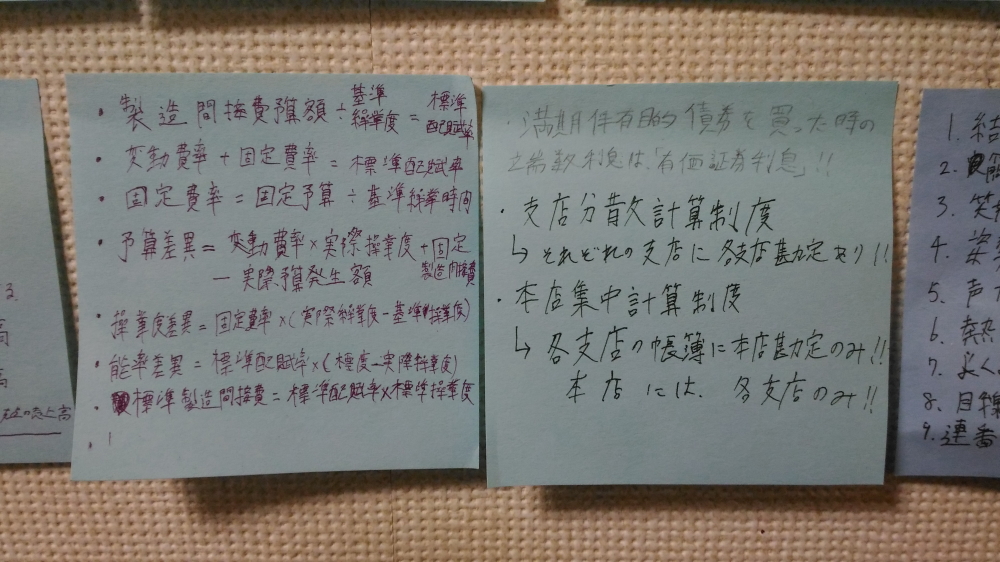 ・製造間接費予算額÷基準操業度=標準配賦率
・変動費率+固定費率=標準配賦率
・固定費率=固定予算÷基準操業時間
・予算差異=変動費率×実際操業度+固定製造間接費
－実際発生額
・操業度差異=固定費率×(実際操業度-基準操業度)
・能率差異=標準配賦率×(標度-実際操業度)
・標準製造間接費=標準配賦率×標準操業度
・満期保有目的債券を買った時の
端数利息は、「有価証券利息」!!
・支店分散計算制度
↳それぞれの支店に各支店勘定せり!!
・本店集中計算制度
↳各支店の帳簿に本店勘定のみ!!
本店には、各支店のみ!!
る
高
高
売上高
1. 結
2.
3. 笑
4. 姿
5. 声
6. 熱
7. よく
8. 目標
9. 連番